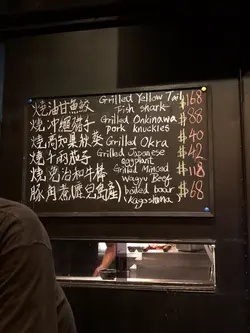 燒油甘魚鮫 Grilled Yellow Tail $168
fish shark
燒沖繩豬手 Grilled Onkinawa $88
pork knuckles
燒高知果秋葵 Grilled Okra $40
燒千兩茄子 Grilled Japanese $42
eggplant
燒免治和牛棒 Grilled Minced $118
Wagyu Beef
豚角煮(鹿兒島產) boiled boar $68
(Kagoshima)